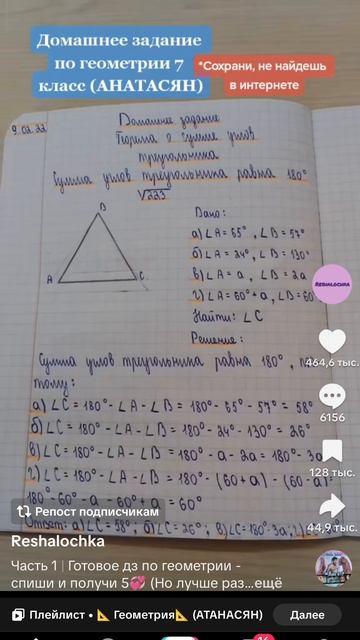 Домашнее задание
по геометрии 7
класс (АНАТАСЯН)
*Сохрани, не найдешь
в интернете
9.02.22
Домашнее задание
Теорема о сумме углов
треугольника
Сумма углов треугольника равна 180°
√223
B
A
C
Дано:
а) ∠A = 65°, ∠B = 57°
б) ∠A = 24°, ∠B = 130°
в) ∠A = a, ∠B = 2a
г) ∠A = 60° + a, ∠B = 60
Найти: ∠C
Решение:
RESHALOCHKA
464,6 тыс.
Сумма углов треугольника равна 180°,
тому:
а) ∠C = 180° - ∠A - ∠B = 180° - 65° - 57° = 58°
6156
б) ∠C = 180° - ∠A - ∠B = 180° - 24° - 130° = 26°
в) ∠C = 180° - ∠A - ∠B = 180° - a - 2a = 180° - 3a
128 тыс.
г) ∠C = 180° - ∠A - ∠B = 180° - (60 + a) - (60 - a) =
180° - 60° - a - 60° + a = 60°
Репост подписчикам
44,9 тыс.
Ответ: а) ∠C = 58°; б) ∠C = 26°; в) ∠C = 180° - 3a;
Reshalochka
Часть 1 | Готовое дз по геометрии -
спиши и получи 5💞 (Но лучше раз...ещё
Плейлист • 📐 Геометрия📐 (АТАНАСЯН)
Далее